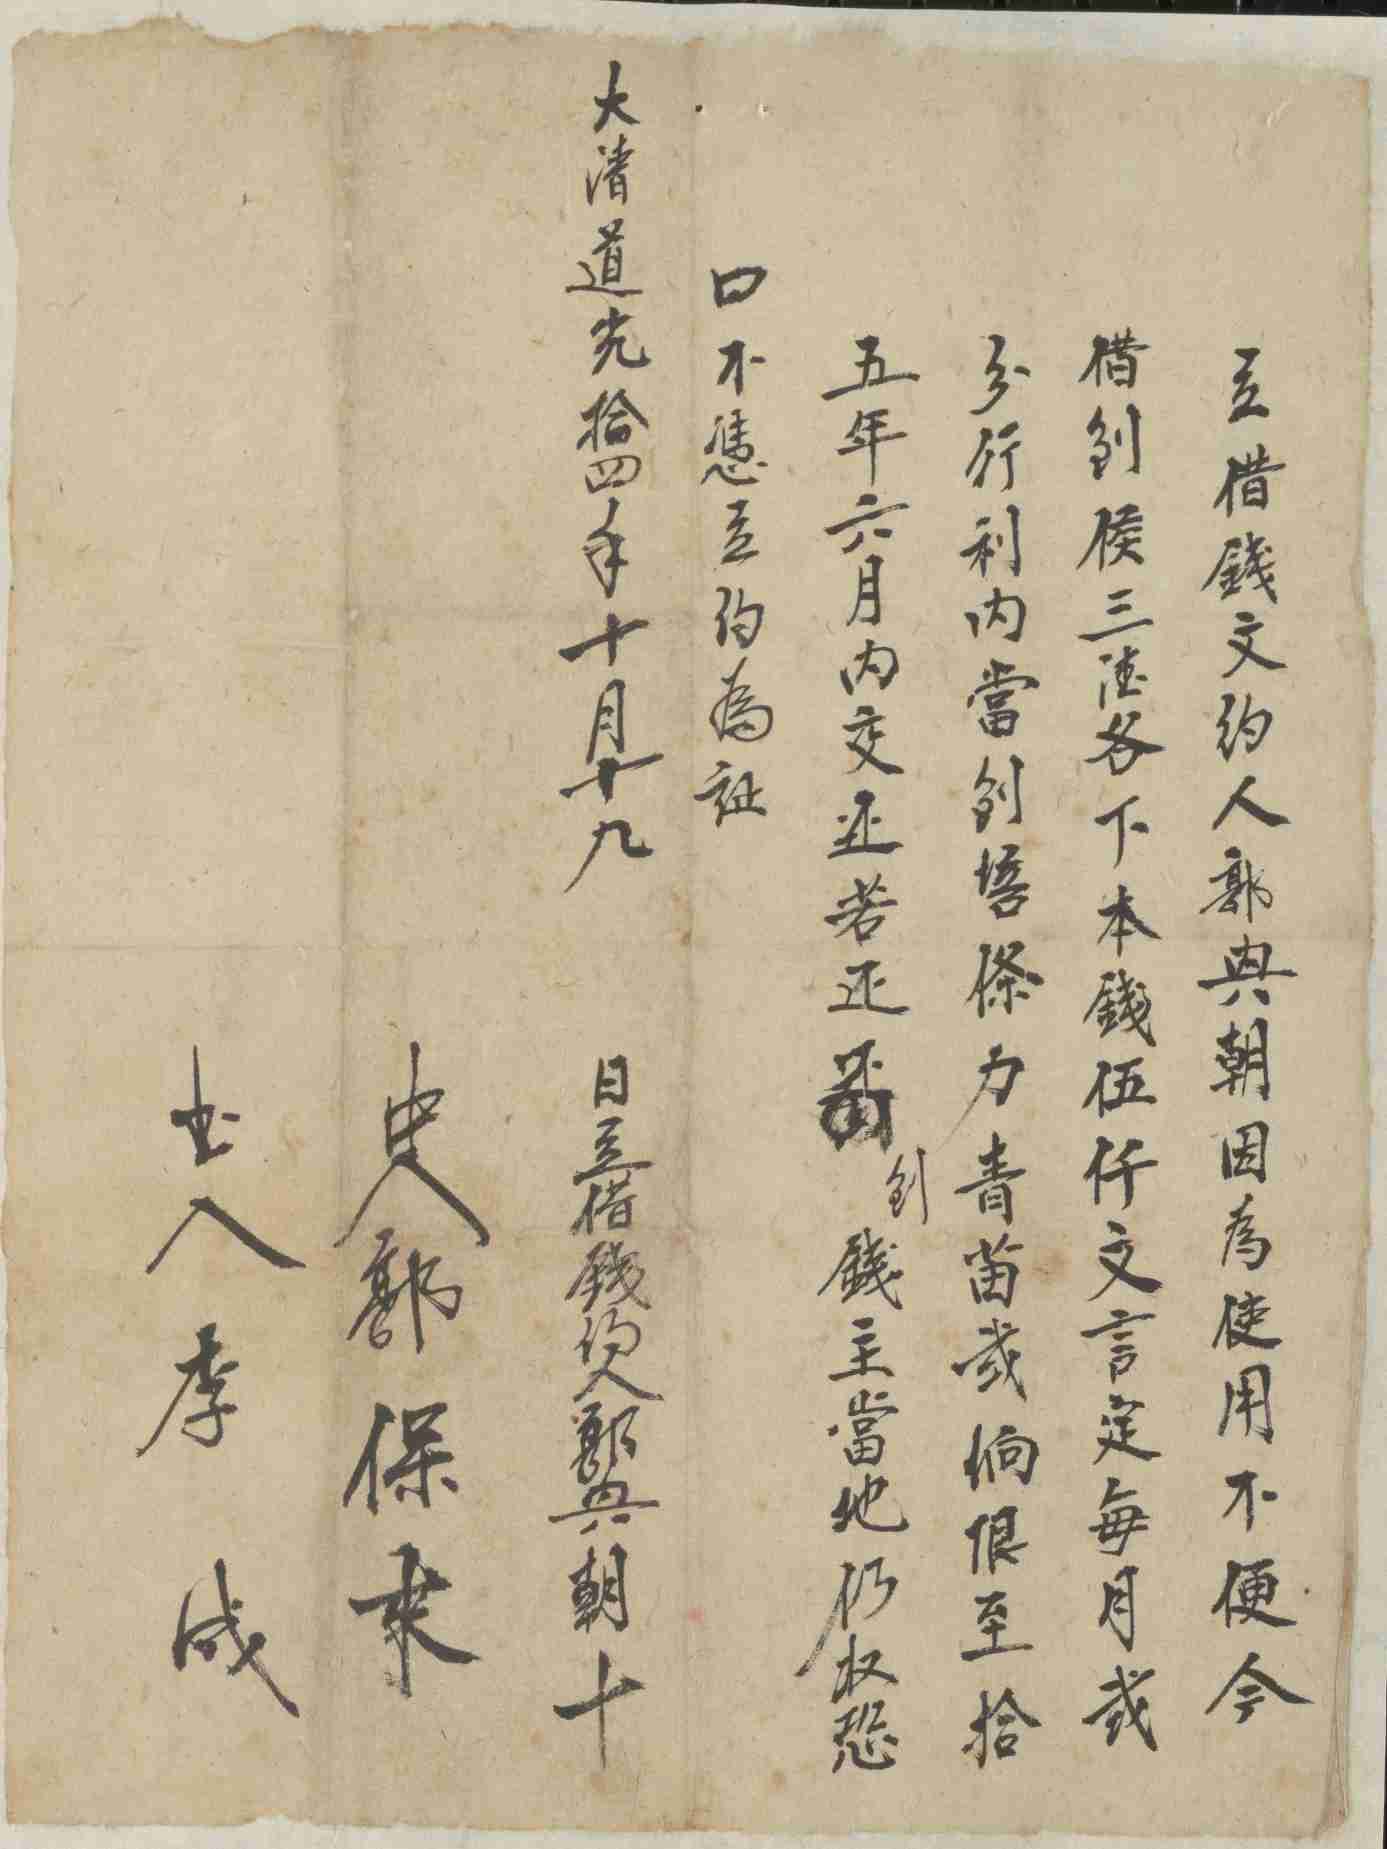 立借錢文約人郭興朝因為使用不便今
借到侯三德名下本錢伍仟文言定每月貳
分行利內當到塔條力青苗貳垧限至拾
五年六月內交还若还不到錢主當地仍收恐
口不憑立約為証
大清道光拾四年十月廿九日立借錢約人郭興朝十
中人郭保來
书人李成